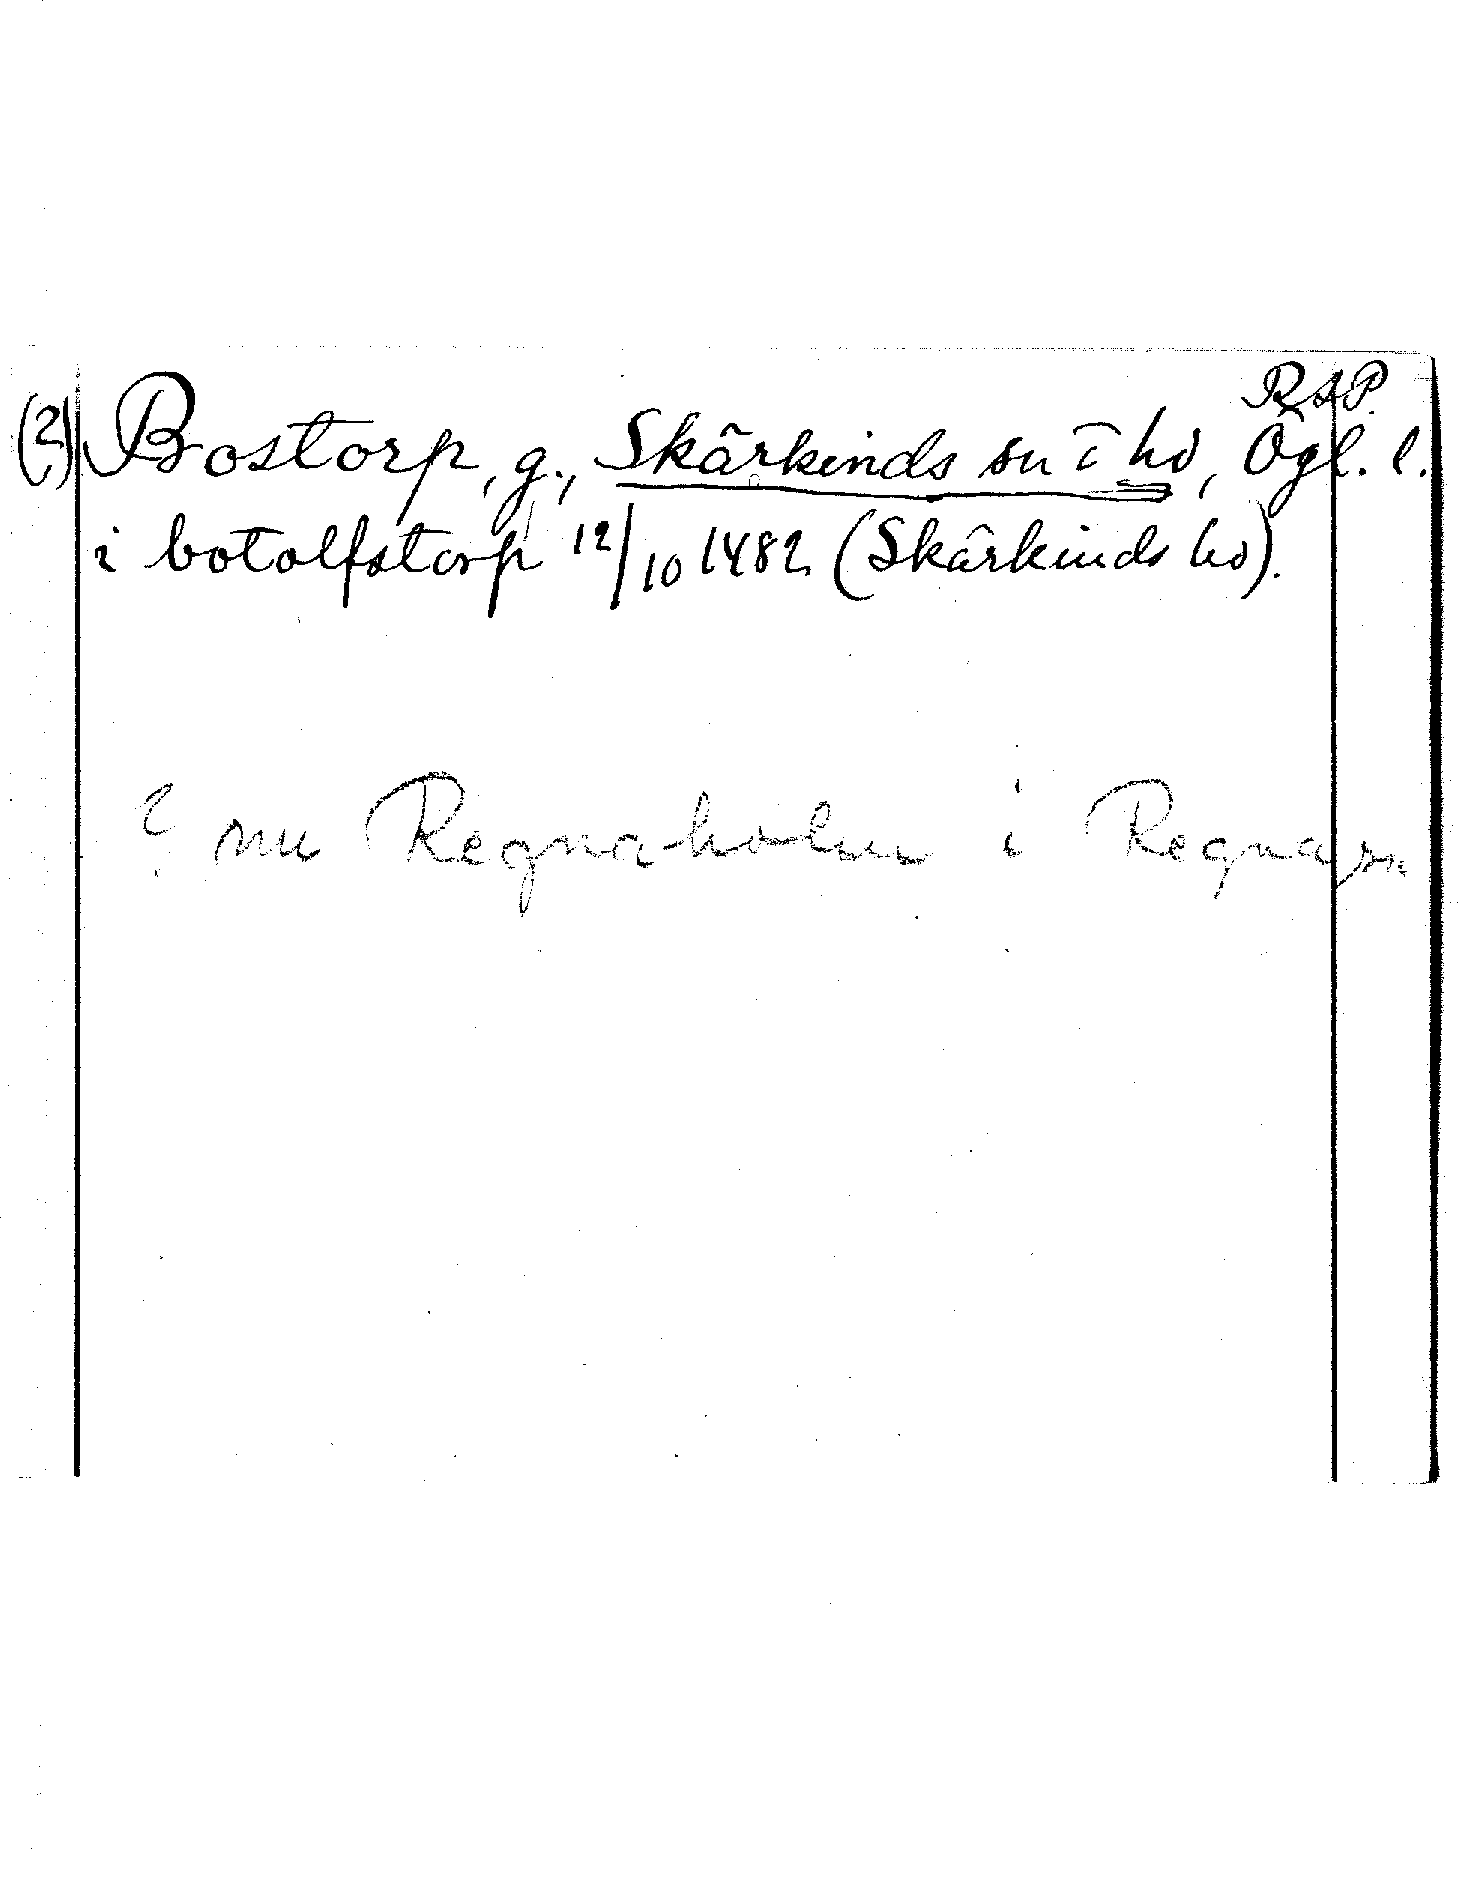 RAP.
(2) Bostorp, g., Skärkinds sn i hd, Ögl. l.
i botolfstorp 12/10 1482 (Skärkinds hd).
? nu Regnaholm i Regna sn